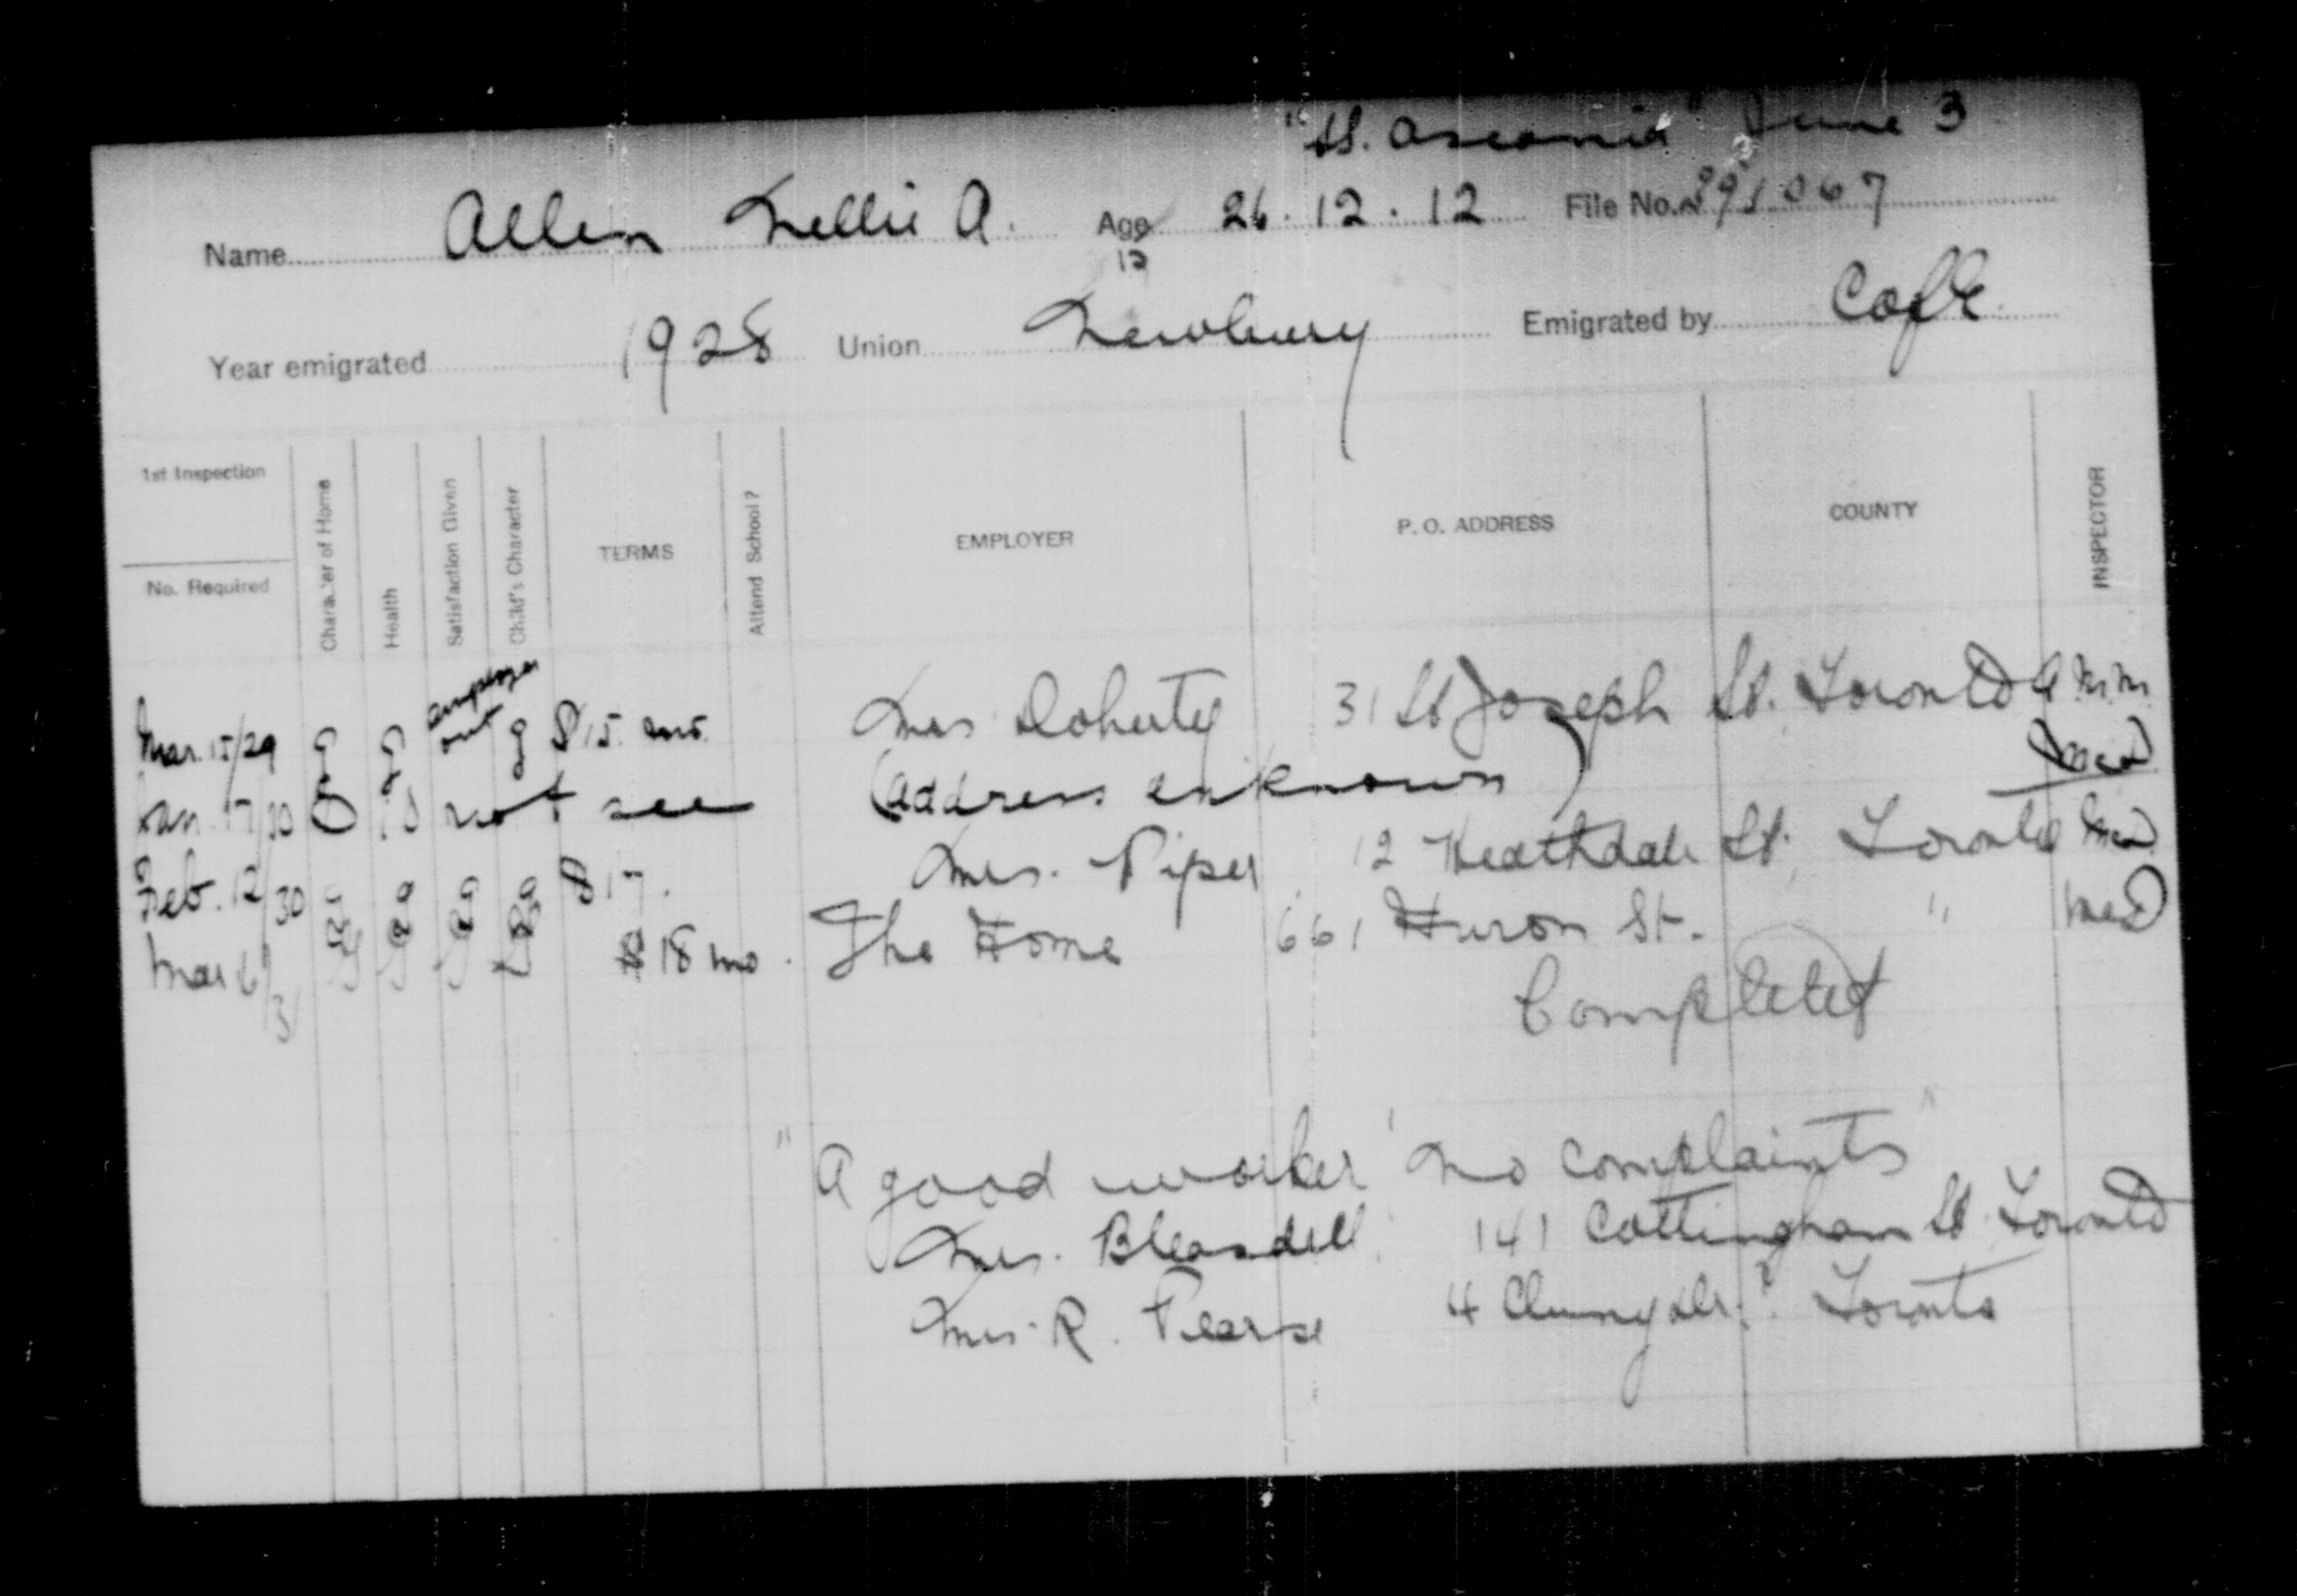 "SS. Ascania" June 3
Name Allen Nellie A. Age 26.12.12 File No.
12
Year emigrated 1928 Union Newbury Emigrated by C of E
1st Inspection
No. Required
Character of Home
Health
Satisfaction Given
Child's Character
TERMS
Attend School?
EMPLOYER
P. O. ADDRESS
COUNTY
INSPECTOR
Mar. 15/29 g g employer out g $15. mo. Mrs Doherty 31 St Joseph St. Toronto
Jan. 17/30 not see (address unknown)
Feb. 12/30 g g g g $17. Mrs. Piper 12 Heathdale St. Toronto
Mar 6/31 $18 mo. The Home 661 Huron St. "
Completed
"A good worker no complaints"
Mrs. Bleasdell 141 Cottingham St Toronto
Mrs. R. Pearse 4 Cluny Dr. Toronto